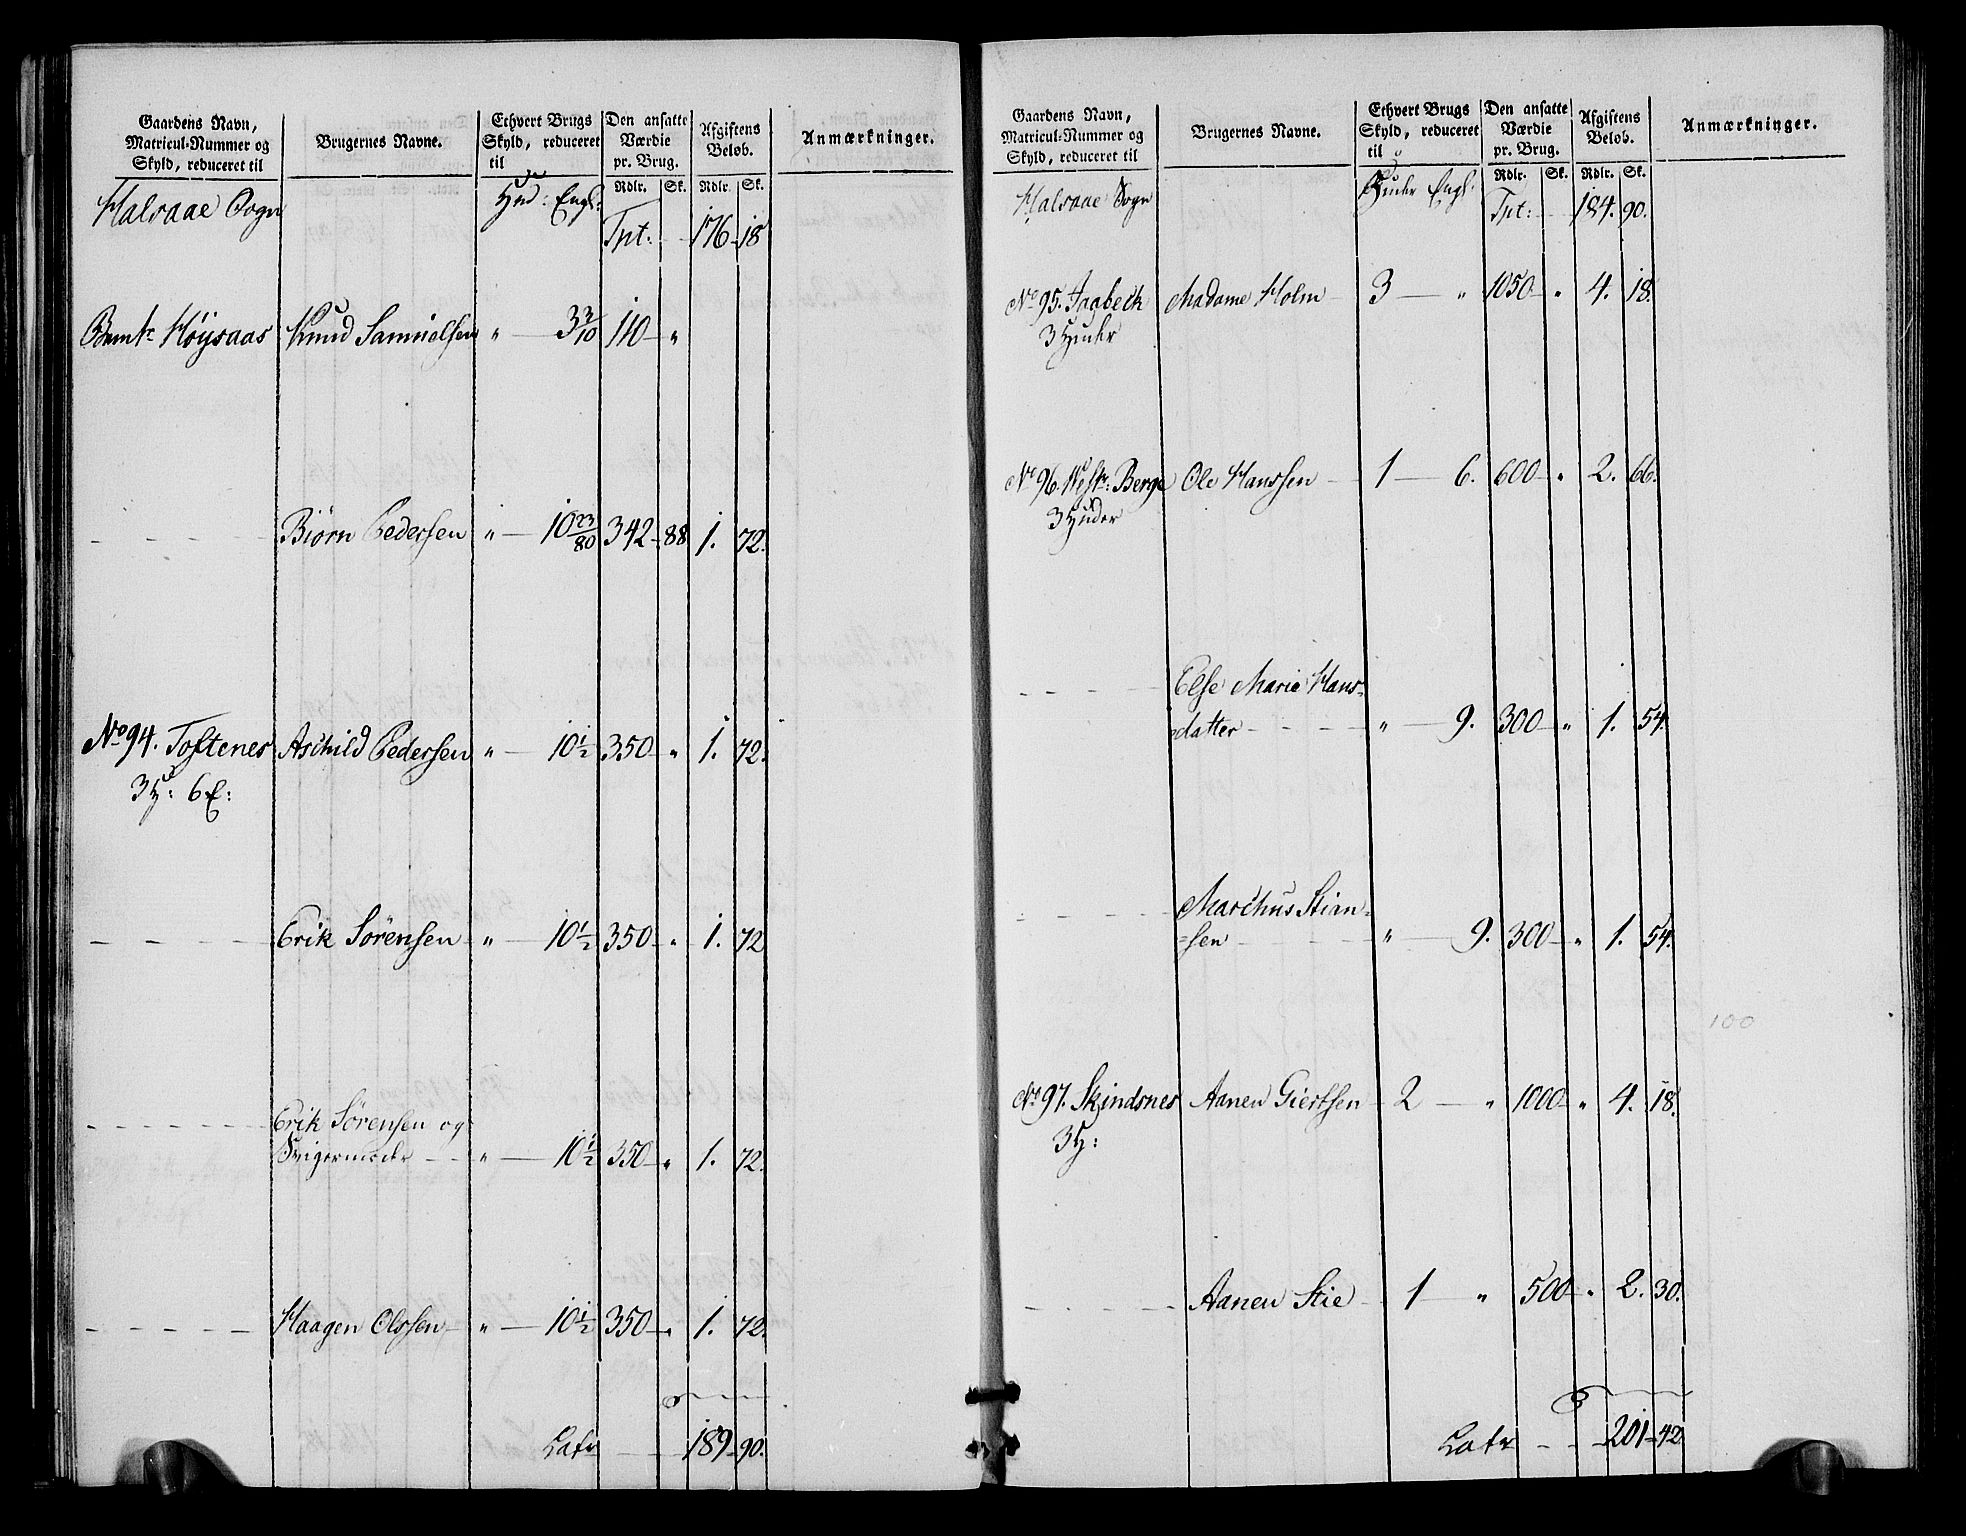 Gaardens Navn,
Matricul-Nummer og
Skyld, reduceret til
Brugernes Navne.
Ethvert Brugs
Skyld, reduceret
til
Den ansatte
Værdie
pr. Brug.
Rdlr. Sk.
Afgiftens
Beløb.
Rdlr. Sk.
Anmærkninger.
Halsaae Sogn
Hud: Engl:
Tpt: 176 18
Bemte Höysaas Knud Samuelsen " 3 3/10 110 "
Biörn Pedersen " 10 23/80 342 88 1. 72.
No 94. Toftenes Aschild Pedersen " 10 1/2 350 " 1. 72.
3 H: 6 E:
Erik Sörensen " 10 1/2 350 " 1. 72
Erik Sörensen og
Svigermoder " 10 1/2 350 " 1. 72.
Haagen Olssen " 10 1/2 350 " 1. 72.
Latr 189 90.
Gaardens Navn,
Matricul-Nummer og
Skyld, reduceret til
Brugernes Navne.
Ethvert Brugs
Skyld, reduceret
til
Den ansatte
Værdie
pr. Brug.
Rdlr. Sk.
Afgiftens
Beløb.
Rdlr. Sk.
Anmærkninger.
Halsaae Sogn
Huder Engl:
Tpt: 184. 90.
No 95. Jaabeck Madame Holm 3 " 1050 " 4. 18.
3 Huder
No 96. Westr: Berge Ole Hanssen 1 6. 600 " 2. 66.
3 Huder
Else Marie Hans-
datter " 9. 300 " 1. 54.
Marchus Stien=
=sen " 9. 300 " 1. 54.
100
No 97. Skindsnes Aanen Giertsen 2 " 1000 " 4. 18.
3 H:
Aanen Stie 1 " 500 " 2. 30.
Latr 201 42